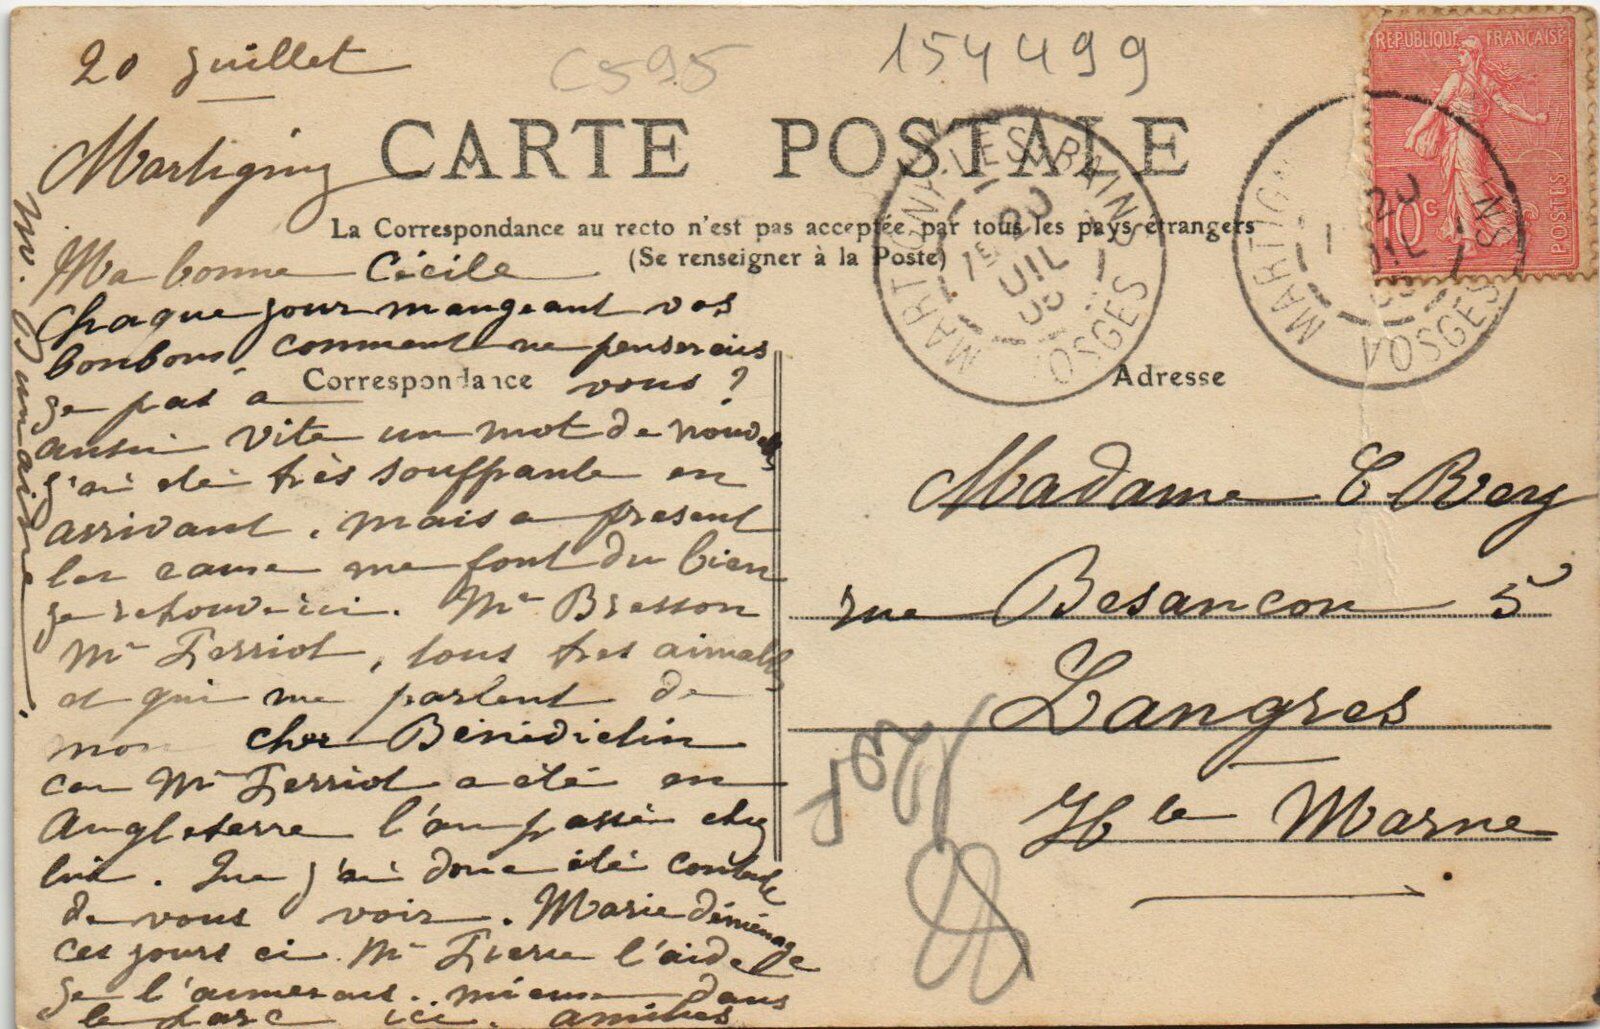 20 juillet
C595
154499
RÉPUBLIQUE FRANÇAISE
10c
POSTES
CARTE POSTALE
Martigny
MARTIGNY-LES-BAINS
VOSGES
1E 20
JUIL
05
MARTIGN
NS
VOSGES
20
JUIL
La Correspondance au recto n'est pas acceptée par tous les pays étrangers
(Se renseigner à la Poste)
Ma bonne Cécile
Chaque jour mangeant vos
bonbons, comment ne penserais
Correspondance
Adresse
je pas à vous ?
aussi vite un mot de nouvelles
j'ai été très souffrante en
arrivant, mais a présent
les eaux me font du bien
je retrouve ici. Mr Bresson
Mr Ferriot, tous tres aimables
et qui me parlent de
mon cher Bénédictin
car Mr Ferriot a été en
Angleterre l'an passé chez
lui. Que j'ai donc été contente
de vous voir. Marie déménage
ces jours ci. Mr Pierre l'aide
je l'aimerais mieux dans
le parc ici. amitiés
M. Dunaime
Madame C Rey
rue Besancon 5
Langres
Hte Marne